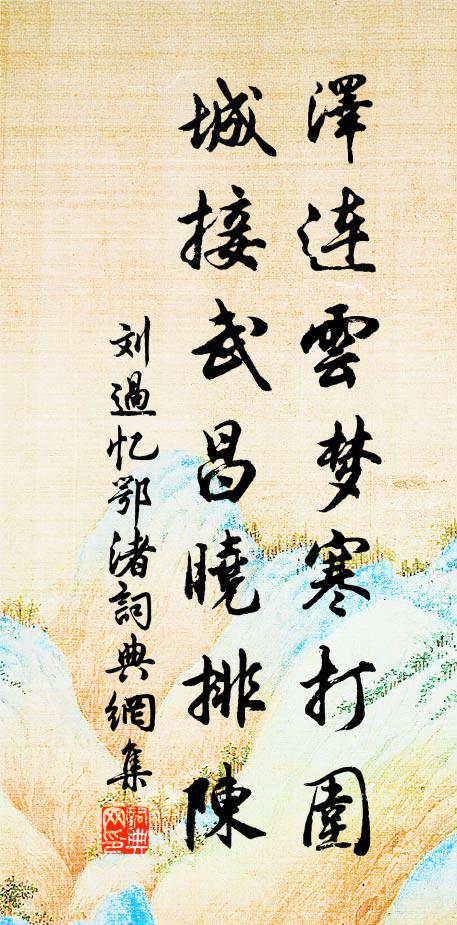 澤连雲梦寒打圍
城接武昌曉排陳
刘過忆鄂渚詞典網集
詞典